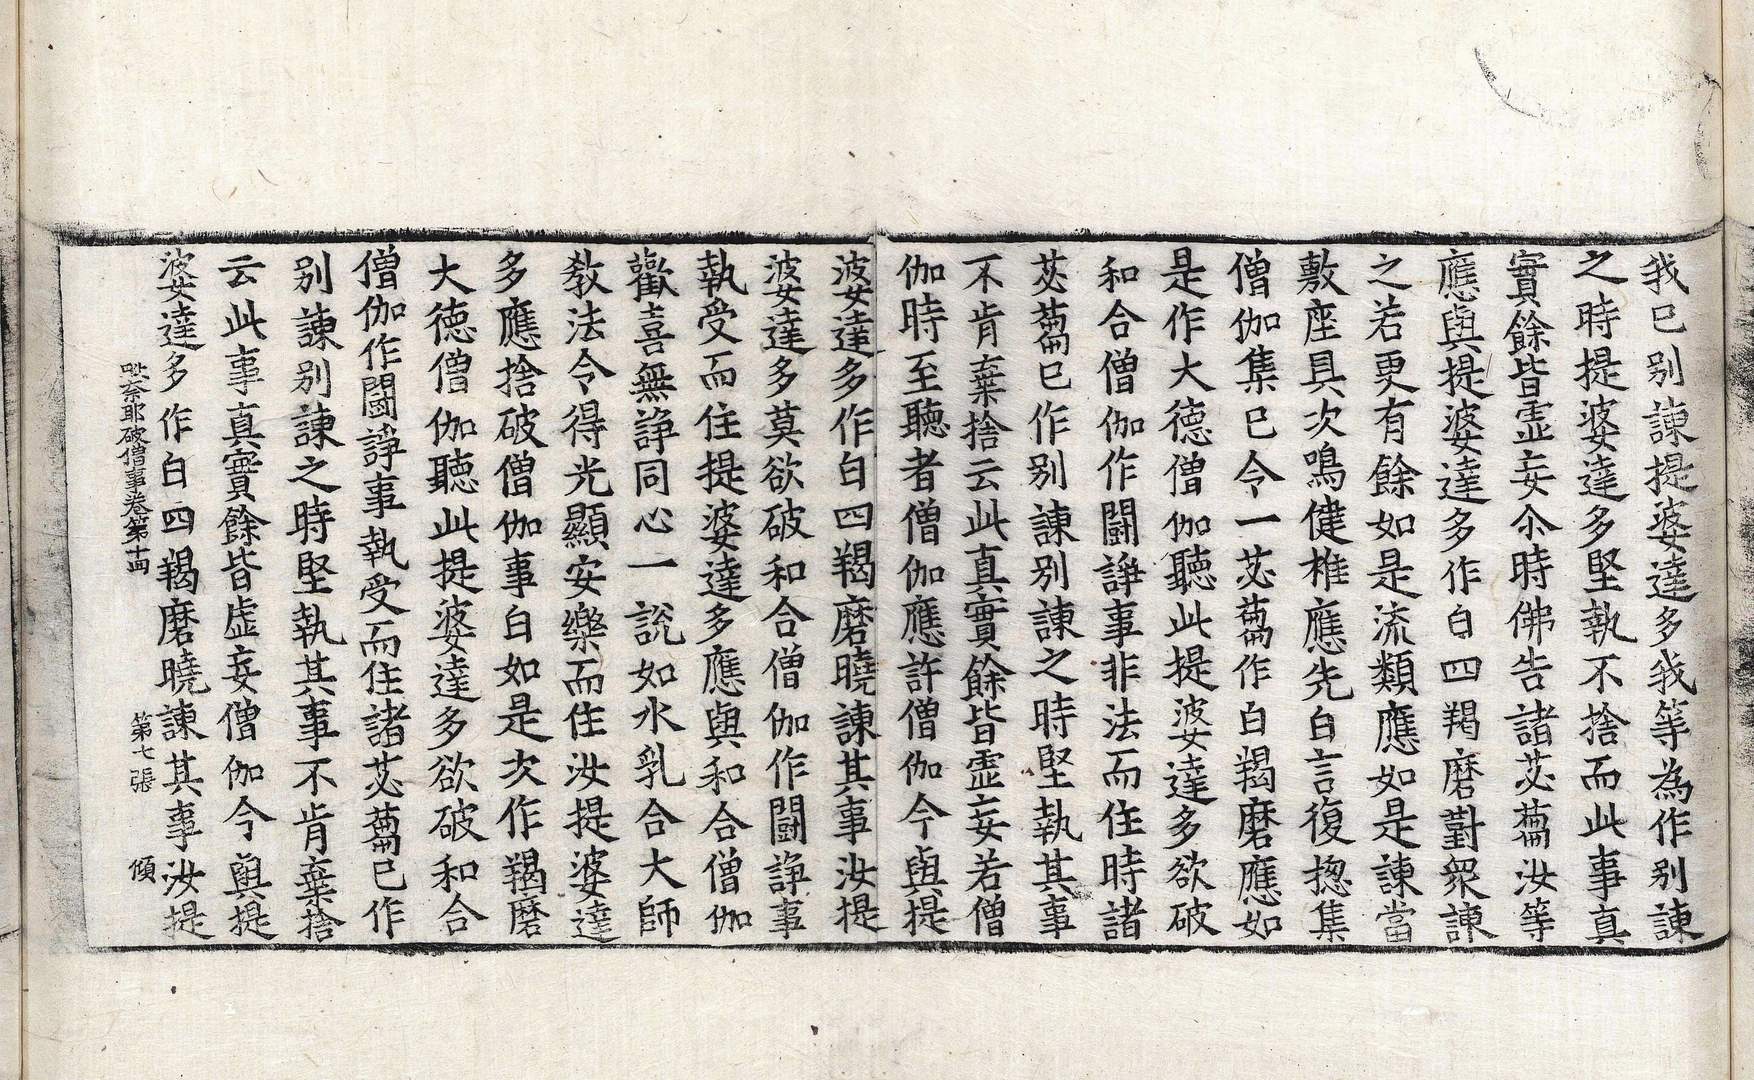 我已別諫提婆達多我等為作別諫
之時提婆達多堅執不捨而此事真
實餘皆虛妄尒時佛告諸苾蒭汝等
應與提婆達多作白四羯磨對衆諫
之若更有餘如是流類應如是諫當
敷座具次鳴健椎應先白言復揔集
僧伽集已令一苾蒭作白羯磨應如
是作大德僧伽聽此提婆達多欲破
和合僧伽作闘諍事非法而住時諸
苾蒭已作別諫別諫之時堅執其事
不肯棄捨云此真實餘皆虛妄若僧
伽時至聽者僧伽應許僧伽今與提
婆達多作白四羯磨曉諫其事汝提
婆達多莫欲破和合僧伽作闘諍事
執受而住提婆達多應與和合僧伽
歡喜無諍同心一說如水乳合大師
教法令得光顯安樂而住汝提婆達
多應捨破僧伽事白如是次作羯磨
大德僧伽聽此提婆達多欲破和合
僧伽作闘諍事執受而住諸苾蒭已作
別諫別諫之時堅執其事不肯棄捨
云此事真實餘皆虛妄僧伽今與提
婆達多作白四羯磨曉諫其事汝提
毗奈耶破僧事卷第十四 第七張 傾